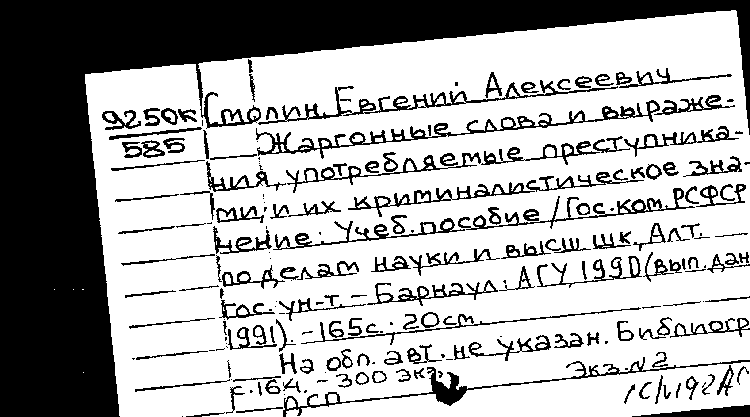 9250к Столин, Евгений Алексеевич
585 Жаргонные слова и выраже-
ния, употребляемые преступника-
ми, и их криминалистическое зна-
чение: Учеб. пособие / Гос. ком. РСФСР
по делам науки и высш шк., Алт.
гос. ун-т. - Барнаул: АГУ, 1990 (вып. дан
1991). - 165с.; 20см.
На обл. авт. не указан. Библиогр
с. 164. - 300 экз.
Экз. N 2
ДСП